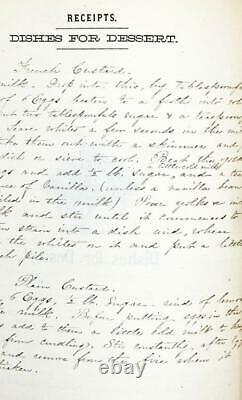 RECEIPTS.
DISHES FOR DESSERT.
French Custard.
milk. Drop into this, by tablespoonfu
of 6 Eggs beaten to a froth into
two tablespoonfuls sugar & a teaspoon
Leave whites a few seconds in the mi
them out with a skimmer and
dish or sieve to cool. Beat the yolks
a little cold milk
gs and add ½ lb. Sugar, and a
of Vanillas (unless a vanilla bean
in the milk) Pour yolks
and stir until it commences to
strain into a dish and when
the whites on it and put a little
Plain Custard.
6 Eggs, ½ lb. Sugar. rind of lemon
milk. Before putting eggs in the
add to them a little cold milk to
from curdling). Stir constantly, after
and remove from the fire when it
thicken.
© ebay.com